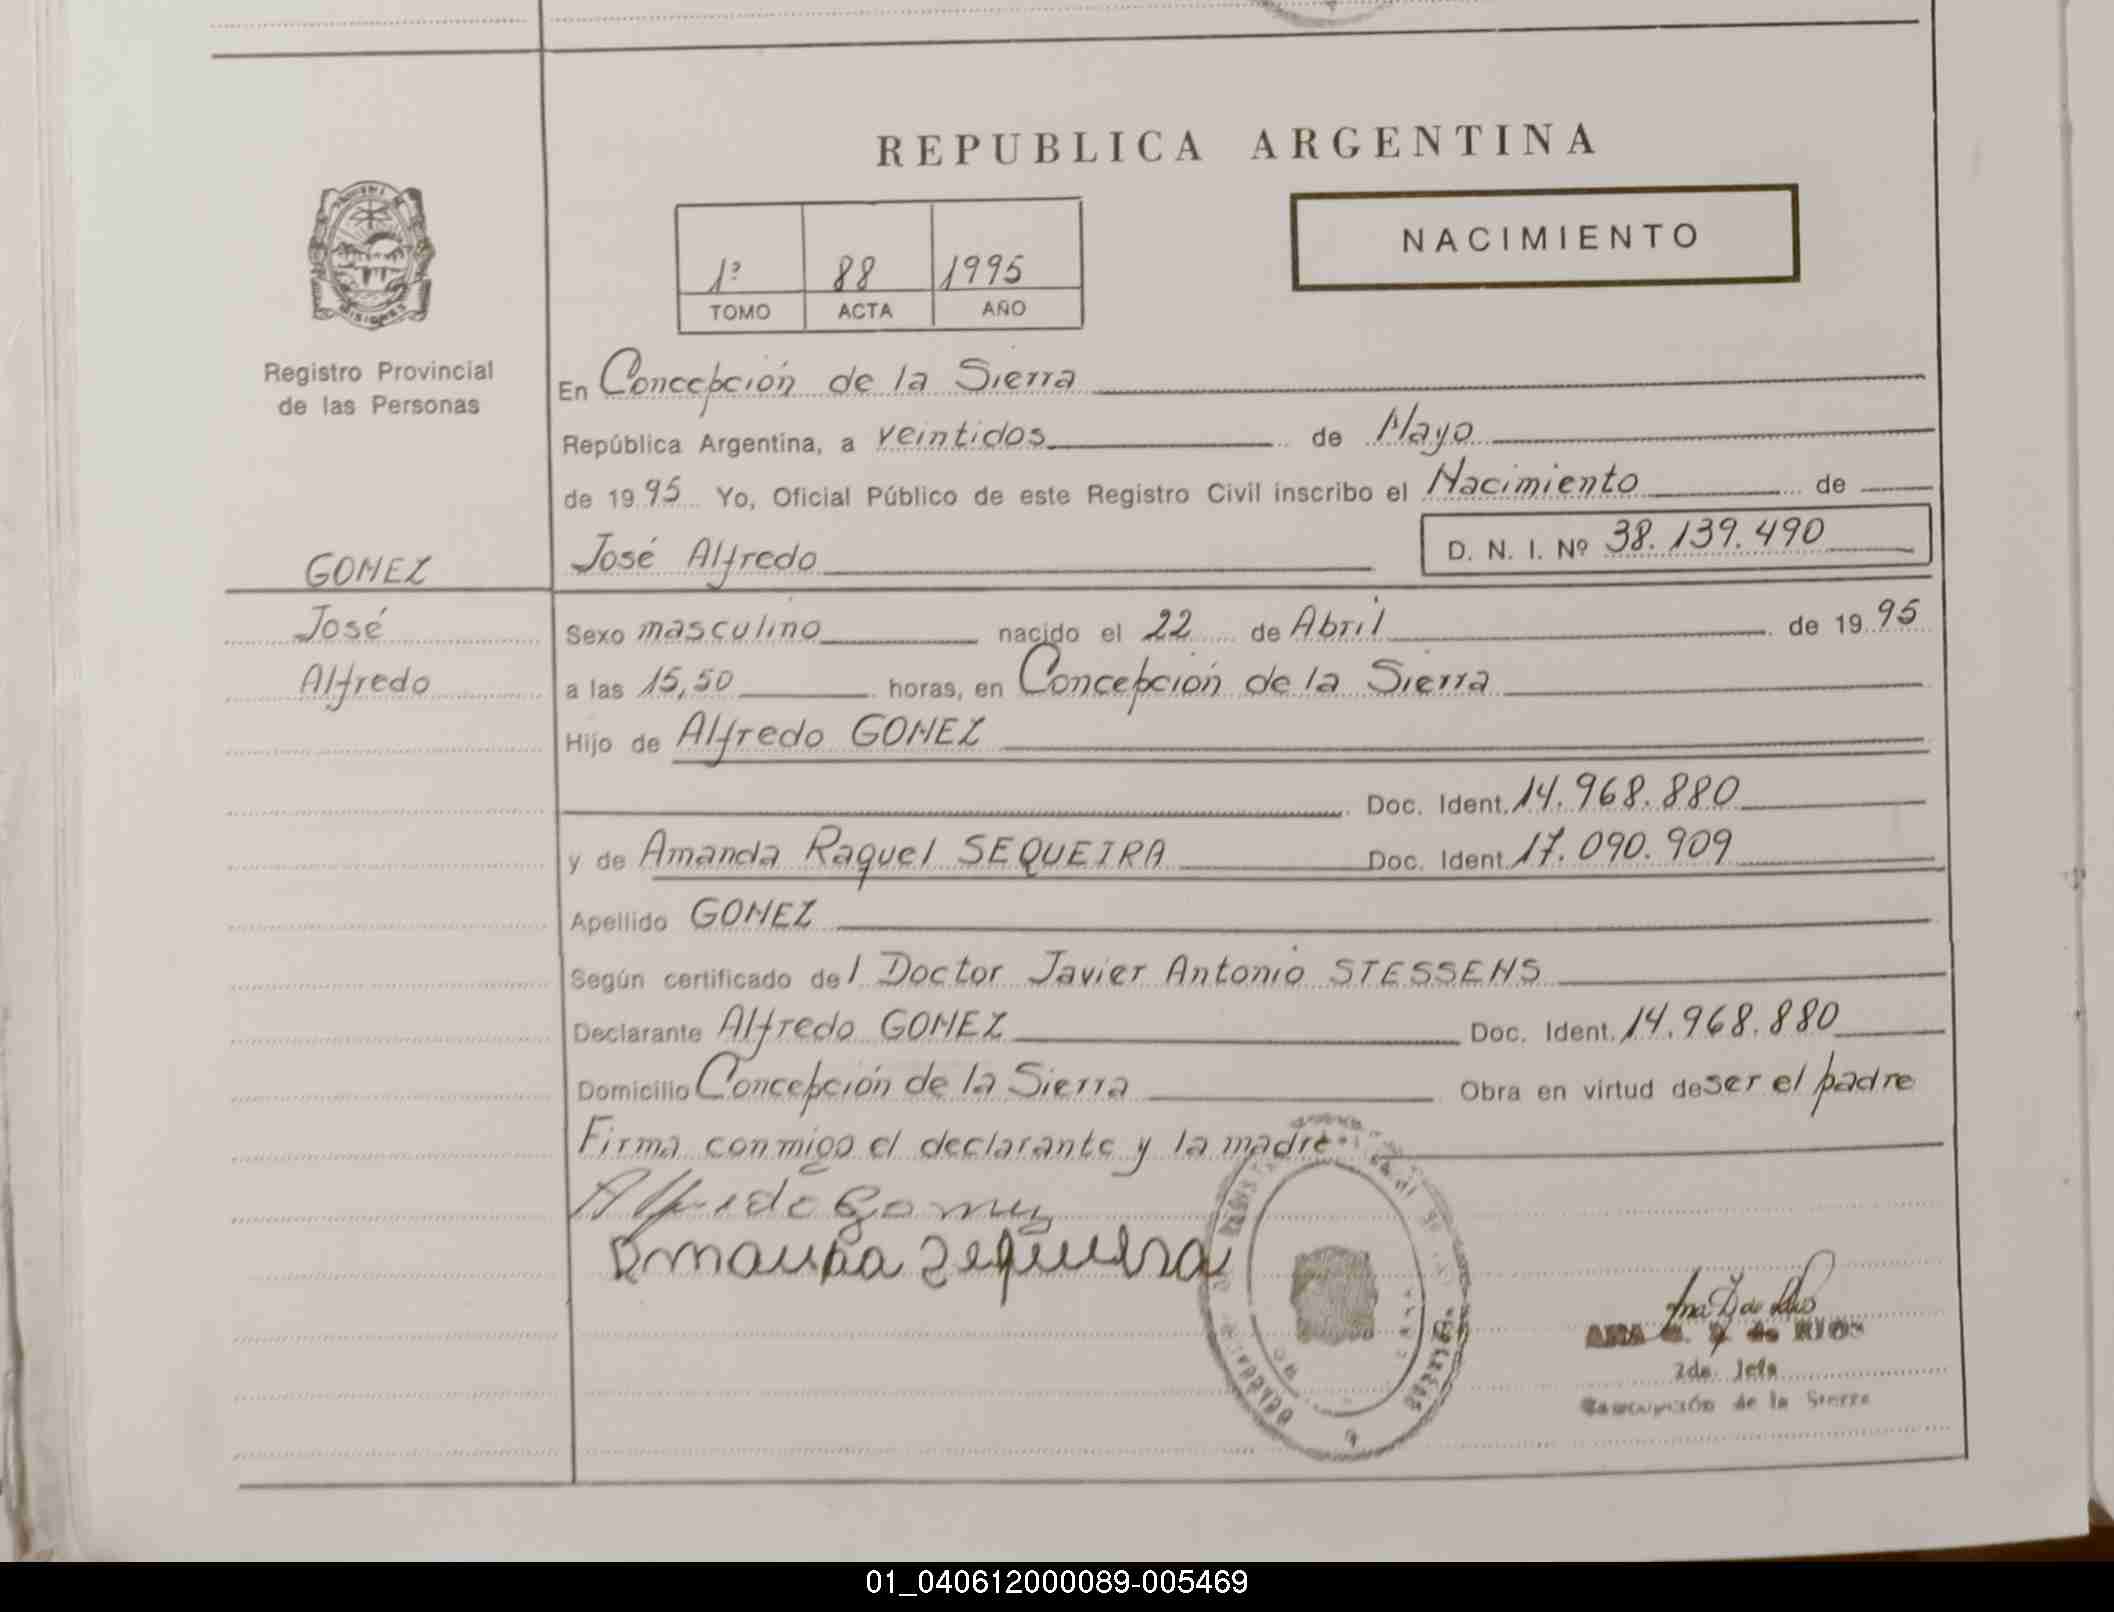 REPUBLICA ARGENTINA
NACIMIENTO
1º 88 1995
TOMO ACTA AÑO
MISIONES
Registro Provincial
de las Personas
En Concepción de la Sierra
República Argentina, a veintidos de Mayo
de 1995 Yo, Oficial Público de este Registro Civil inscribo el Nacimiento de
José Alfredo D. N. I. Nº 38.139.490
GOMEZ
José
Alfredo
Sexo masculino nacido el 22 de Abril de 1995
a las 15,50 horas, en Concepción de la Sierra
Hijo de Alfredo GOMEZ
Doc. Ident. 14.968.880
y de Amanda Raquel SEQUEIRA Doc. Ident. 17.090.909
Apellido GOMEZ
Según certificado del Doctor Javier Antonio STESSENS
Declarante Alfredo GOMEZ Doc. Ident. 14.968.880
Domicilio Concepción de la Sierra Obra en virtud de ser el padre
Firma conmigo el declarante y la madre
Alfredo Gomez
Amanda Sequeira
ANA de RIOS
2da. Jefa
Concepción de la Sierra
01_040612000089-005469